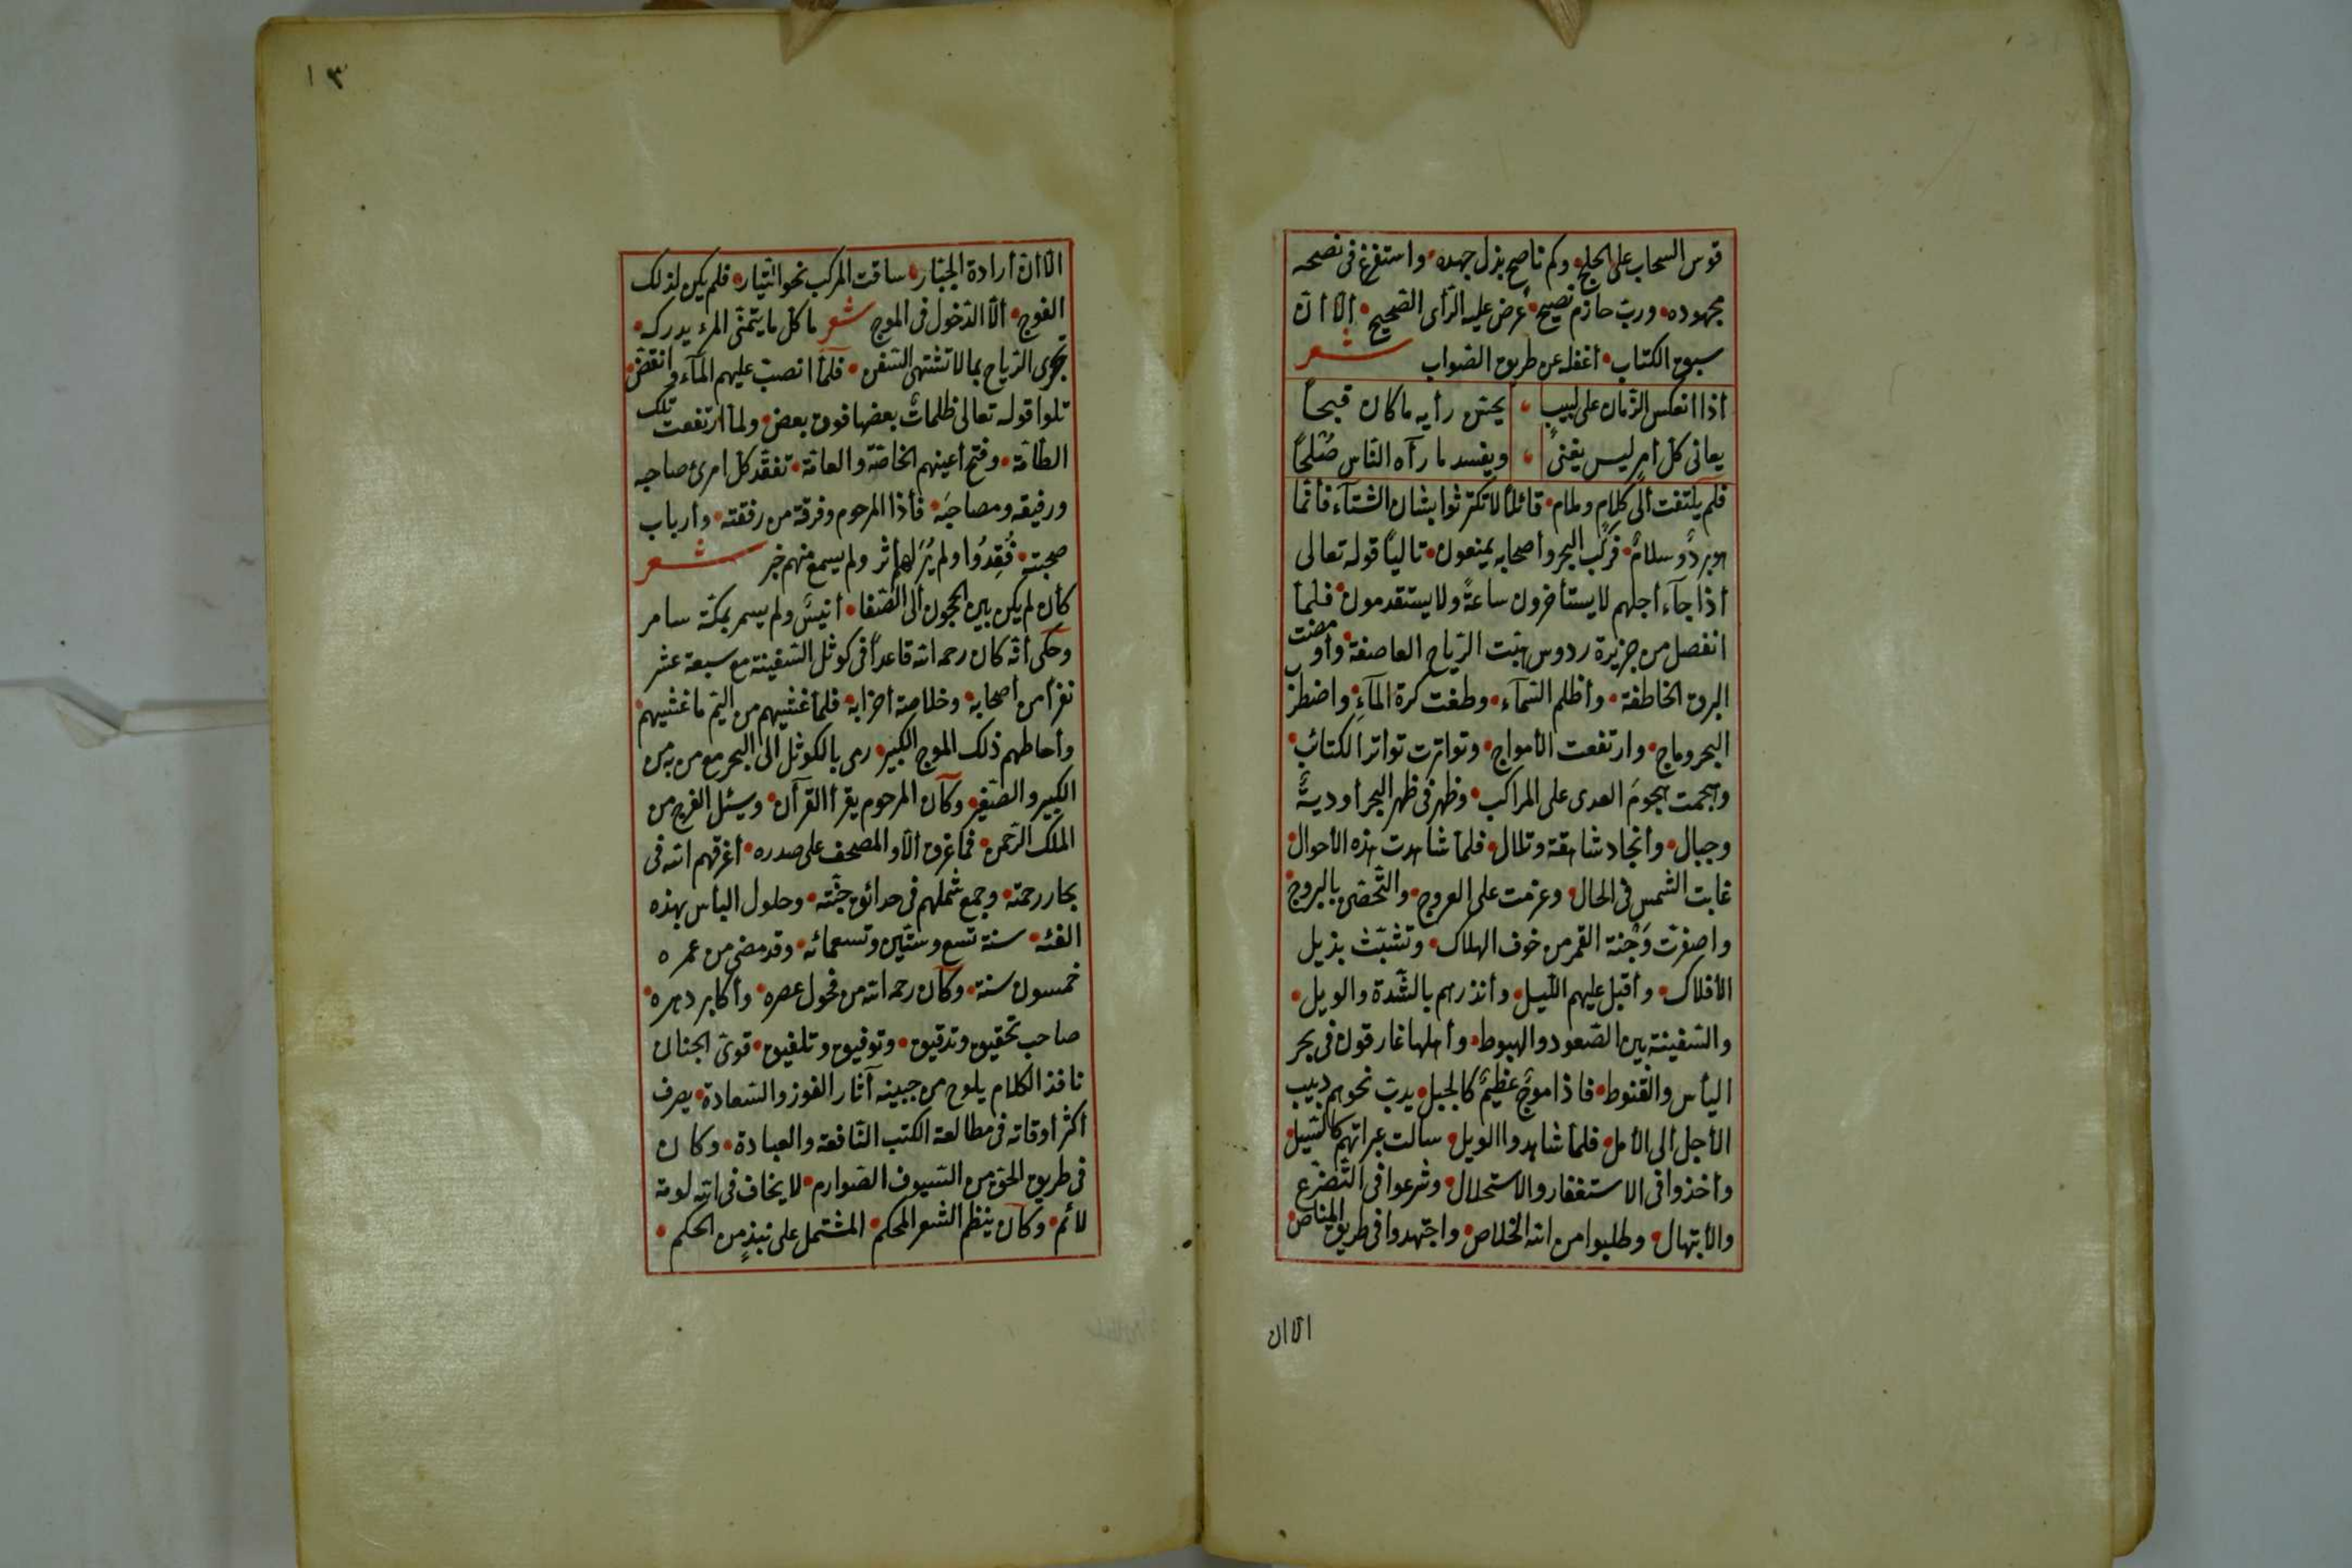 قوس السحاب على الحلج وكم ناصح بذل جهده واستفرغ فى نصحه
مجهوده ورب حازم نصيح عرض عليه الرأى الصحيح الا أن
سبق الكتاب أغفله عن طريق الصواب شعر
أذا انعكس الزمان على لبيب يحسن رأيه ما كان قبيحاً
يعانى كل أمر ليس يغنى ويفسد ما رآه الناس صلحاً
فلم يلتفت ألى كلام وملام قائلاً لا تكترثوا بشان الشتآء فأنما
هو بردٌ وسلامٌ فركب البحر وأصحابه يمنعون تالياً قوله تعالى
أذا جآء أجلهم لا يستأخرون ساعةً ولا يستقدمون فلما
انفصل من جزيرة ردوس هبت الرياح العاصفة وأومضت
البروق الخاطفة وأظلم السماء وطغت كرة المآء واضطرب
البحر وماج وارتفعت الأمواج وتواترت تواتر الكتائب
وهجمت هجوم العدى على المراكب وظهر فى ظهر البحر أوديةٌ
وجبال وأنجاد شاهقة وتلال فلما شاهدت هذه الأحوال
غابت الشمس فى الحال وعزمت على العروج والتحصن بالبروج
واصفرت وَجْنة القمر من خوف الهلاك وتشبّث بذيل
الأفلاك وأقبل عليهم الليل وأنذرهم بالشّدة والويل
والسفينة بين الصعود والهبوط وأهلها غارقون فى بحر
اليأس والقنوط فاذا موجٌ عظيمٌ كالجبل يدبّ نحوهم دبيب
الأجل ألى الأمل فلما شاهدوا الويل سالت عبراتهم كالسيل
وأخذوا فى الاستغفار والاستحلال وشرعوا فى التضرّع
والأبتهال وطلبوا من الله الخلاص واجتهدوا فى طريق المناص
الا ان
١٣
الا ان أرادة الجبار ساقت المركب نحو التيار فلم يكن لذلك
الفوج الا الدخول فى الموج شعر ما كل ما يتمنى المرء يدركه
تجرى الرياح بما لا تشتهى السفن فلما انصب عليهم المآء وانقض
تلوا قوله تعالى ظلماتٌ بعضها فوق بعض ولما ارتفعت تلك
الطامة وفتح أعينهم الخاصة والعامة تفقّد كل امرئ صاحبه
ورفيقه ومصاحبَه فأذا المرحوم وفرقة من رفقته وأرباب
صحبته فُقِدُوا ولم يُرَ لهم أثر ولم يسمع منهم خبر شعر
كأن لم يكن بين الحجون ألى الصفا أنيسٌ ولم يسمر بمكّة سامر
وحكى أنه كان رحمه الله قاعداً فى كوثل السفينة مع سبعة عشر
نفراً من أصحابه وخلاصة أحزابه فلما غشيهم من اليمّ ما غشيهم
وأحاطهم ذلك الموج الكبير رمى بالكوثل الى البحر مع من به من
الكبير والصغير وكان المرحوم يقرأ القرآن وسيئل الفرج من
الملك الرحمن فما غرق الا والمصحف على صدره أغرقهم الله فى
بحار رحمته وجمع شملهم فى حدائق جنّته وحلول البأس بهذه
الفئه سنة تسع وستّين وتسعمائه وقد مضى من عمره
خمسون سنة وكان رحمه الله من فحول عصره وأكابر دهره
صاحب تحقيق وتدقيق وتوفيق وتلفيق قوىّ الجنان
نافذ الكلام يلوح من جبينه آثار الفوز والسعادة يصرف
أكثر أوقاته فى مطالعة الكتب النافعة والعبادة وكان
فى طريق الحق من السيوف الصوارم لا يخاف فى الله لومة
لائم وكان ينظم الشعر المحكم المشتمل على نبذٍ من الحكم